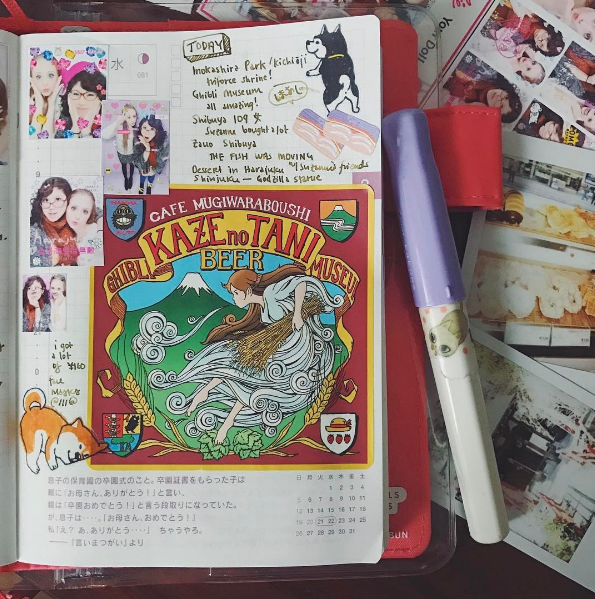 水
TODAY
Inokashira Park / Kichijoji
triforce shrine!
Ghibli Museum
all amazing!
Shibuya 109 &
Suzanne bought a lot
Zauo Shibuya
THE FISH WAS MOVING
Dessert in Harajuku w/ Suzanne's friends
Shinjuku — Godzilla statue
CAFE MUGIWARABOUSHI
KAZE no TANI
BEER
GHIBLI MUSEUM
i got
a lot
of ¥100
face
masks
息子の保育園の卒園式のこと。卒園証書をもらった子は
親に「お母さん、ありがとう!」と言い、
親は「卒園おめでとう!」と言う段取りになっていた。
が、息子は‥‥。「お母さん、おめでとう!」
私「え? あ、ありがとう‥‥」 ちゃうやろ。
——『言いまつがい』より
日 月 火 水 木 金 土
1 2 3 4
5 6 7 8 9 10 11
12 13 14 15 16 17 18
19 20 21 22 23 24 25
26 27 28 29 30 31